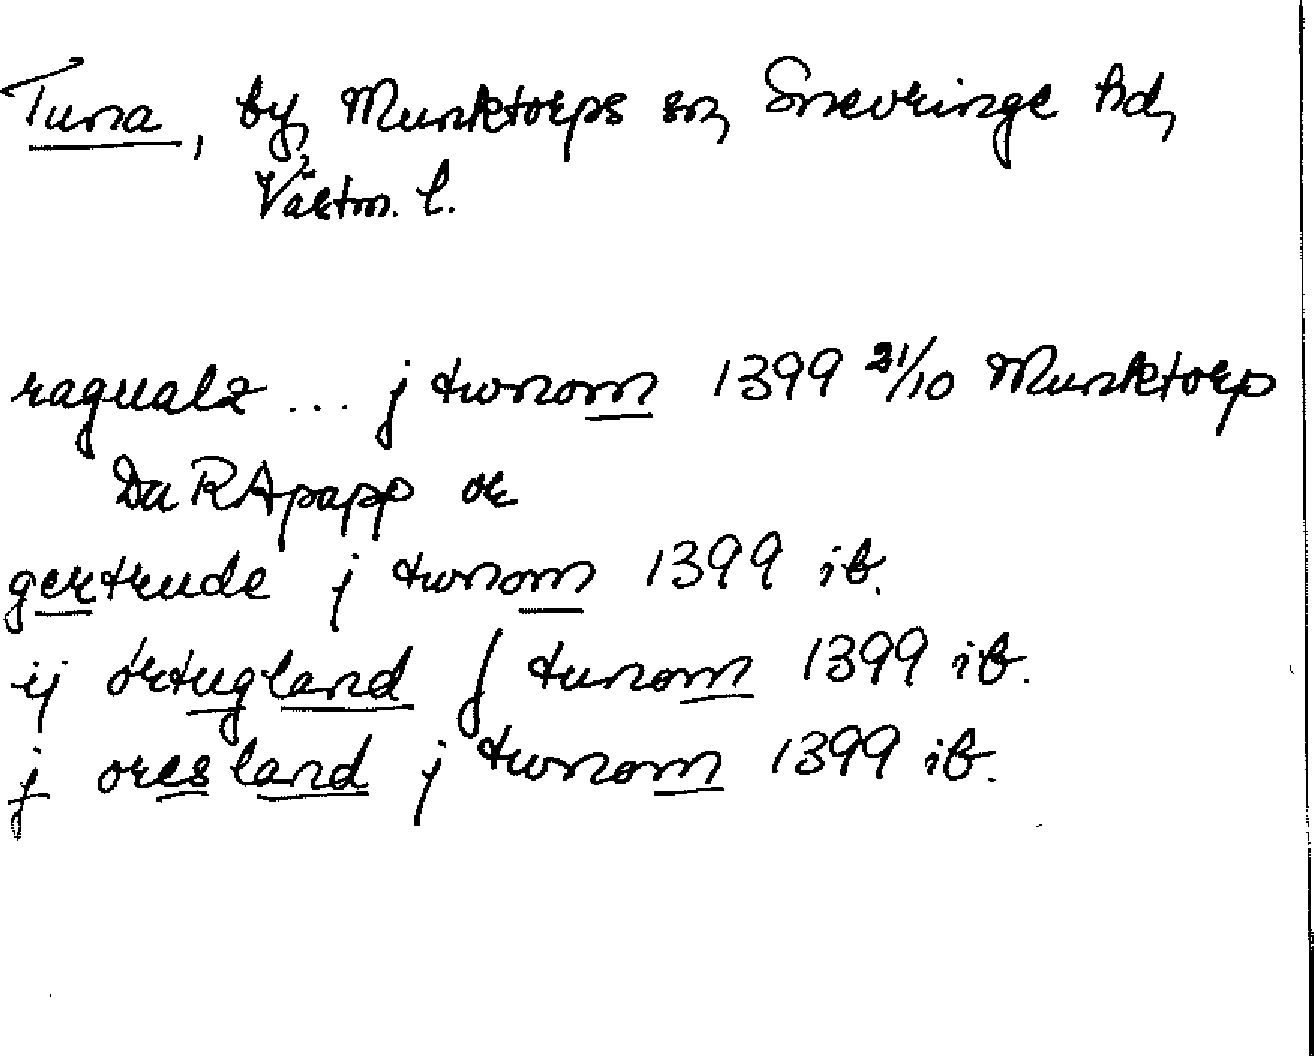 Tuna, by, Munktorps sn, Snevringe hd,
Västm. l.
ragualz ... j twnom 1399 21/10 Munktorp
Da RApapp or
gertrude j twnom 1399 ib.
ij örtugland j tunom 1399 ib.
j oresland j twnom 1399 ib.